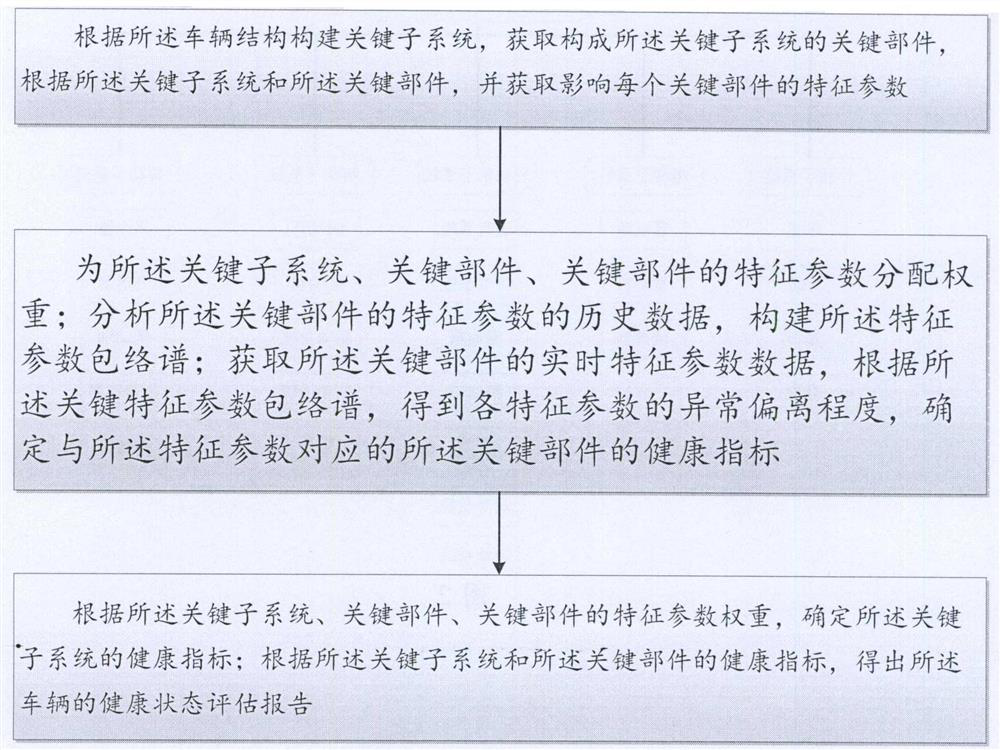 根据所述车辆结构构建关键子系统，获取构成所述关键子系统的关键部件，
根据所述关键子系统和所述关键部件，并获取影响每个关键部件的特征参数
为所述关键子系统、关键部件、关键部件的特征参数分配权
重；分析所述关键部件的特征参数的历史数据，构建所述特征
参数包络谱；获取所述关键部件的实时特征参数数据，根据所
述关键特征参数包络谱，得到各特征参数的异常偏离程度，确
定与所述特征参数对应的所述关键部件的健康指标
根据所述关键子系统、关键部件、关键部件的特征参数权重，确定所述关键
子系统的健康指标；根据所述关键子系统和所述关键部件的健康指标，得出所述
车辆的健康状态评估报告